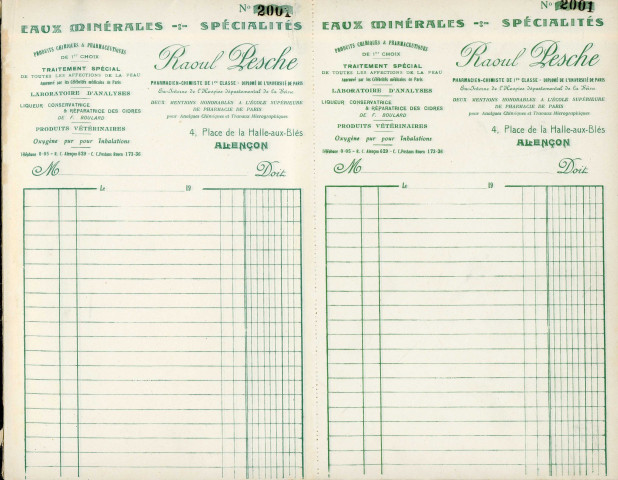 Nº 2001
EAUX MINÉRALES -:- SPÉCIALITÉS
PRODUITS CHIMIQUES & PHARMACEUTIQUES
DE 1er CHOIX
TRAITEMENT SPÉCIAL
DE TOUTES LES AFFECTIONS DE LA PEAU
approuvé par les Célébrités médicales de Paris
LABORATOIRE D'ANALYSES
LIQUEUR CONSERVATRICE
& RÉPARATRICE DES CIDRES
DE F. ROULARD
PRODUITS VÉTÉRINAIRES
Oxygène pur pour Inhalations
Téléphone 0-05 - R. C. Alençon 629 - C. C. Postaux Rouen 173-36
Raoul Pesche
PHARMACIEN-CHIMISTE DE 1re CLASSE - DIPLOMÉ DE L'UNIVERSITÉ DE PARIS
Ex-Interne de l'Hospice départemental de la Seine
DEUX MENTIONS HONORABLES A L'ÉCOLE SUPÉRIEURE
DE PHARMACIE DE PARIS
pour Analyses Chimiques et Travaux Micrographiques
4, Place de la Halle-aux-Blés
ALENÇON
M Doit
Le 19
Nº 2001
EAUX MINÉRALES -:- SPÉCIALITÉS
PRODUITS CHIMIQUES & PHARMACEUTIQUES
DE 1er CHOIX
TRAITEMENT SPÉCIAL
DE TOUTES LES AFFECTIONS DE LA PEAU
approuvé par les Célébrités médicales de Paris
LABORATOIRE D'ANALYSES
LIQUEUR CONSERVATRICE
& RÉPARATRICE DES CIDRES
DE F. ROULARD
PRODUITS VÉTÉRINAIRES
Oxygène pur pour Inhalations
Téléphone 0-05 - R. C. Alençon 629 - C. C. Postaux Rouen 173-36
Raoul Pesche
PHARMACIEN-CHIMISTE DE 1re CLASSE - DIPLOMÉ DE L'UNIVERSITÉ DE PARIS
Ex-Interne de l'Hospice départemental de la Seine
DEUX MENTIONS HONORABLES A L'ÉCOLE SUPÉRIEURE
DE PHARMACIE DE PARIS
pour Analyses Chimiques et Travaux Micrographiques
4, Place de la Halle-aux-Blés
ALENÇON
M Doit
Le 19